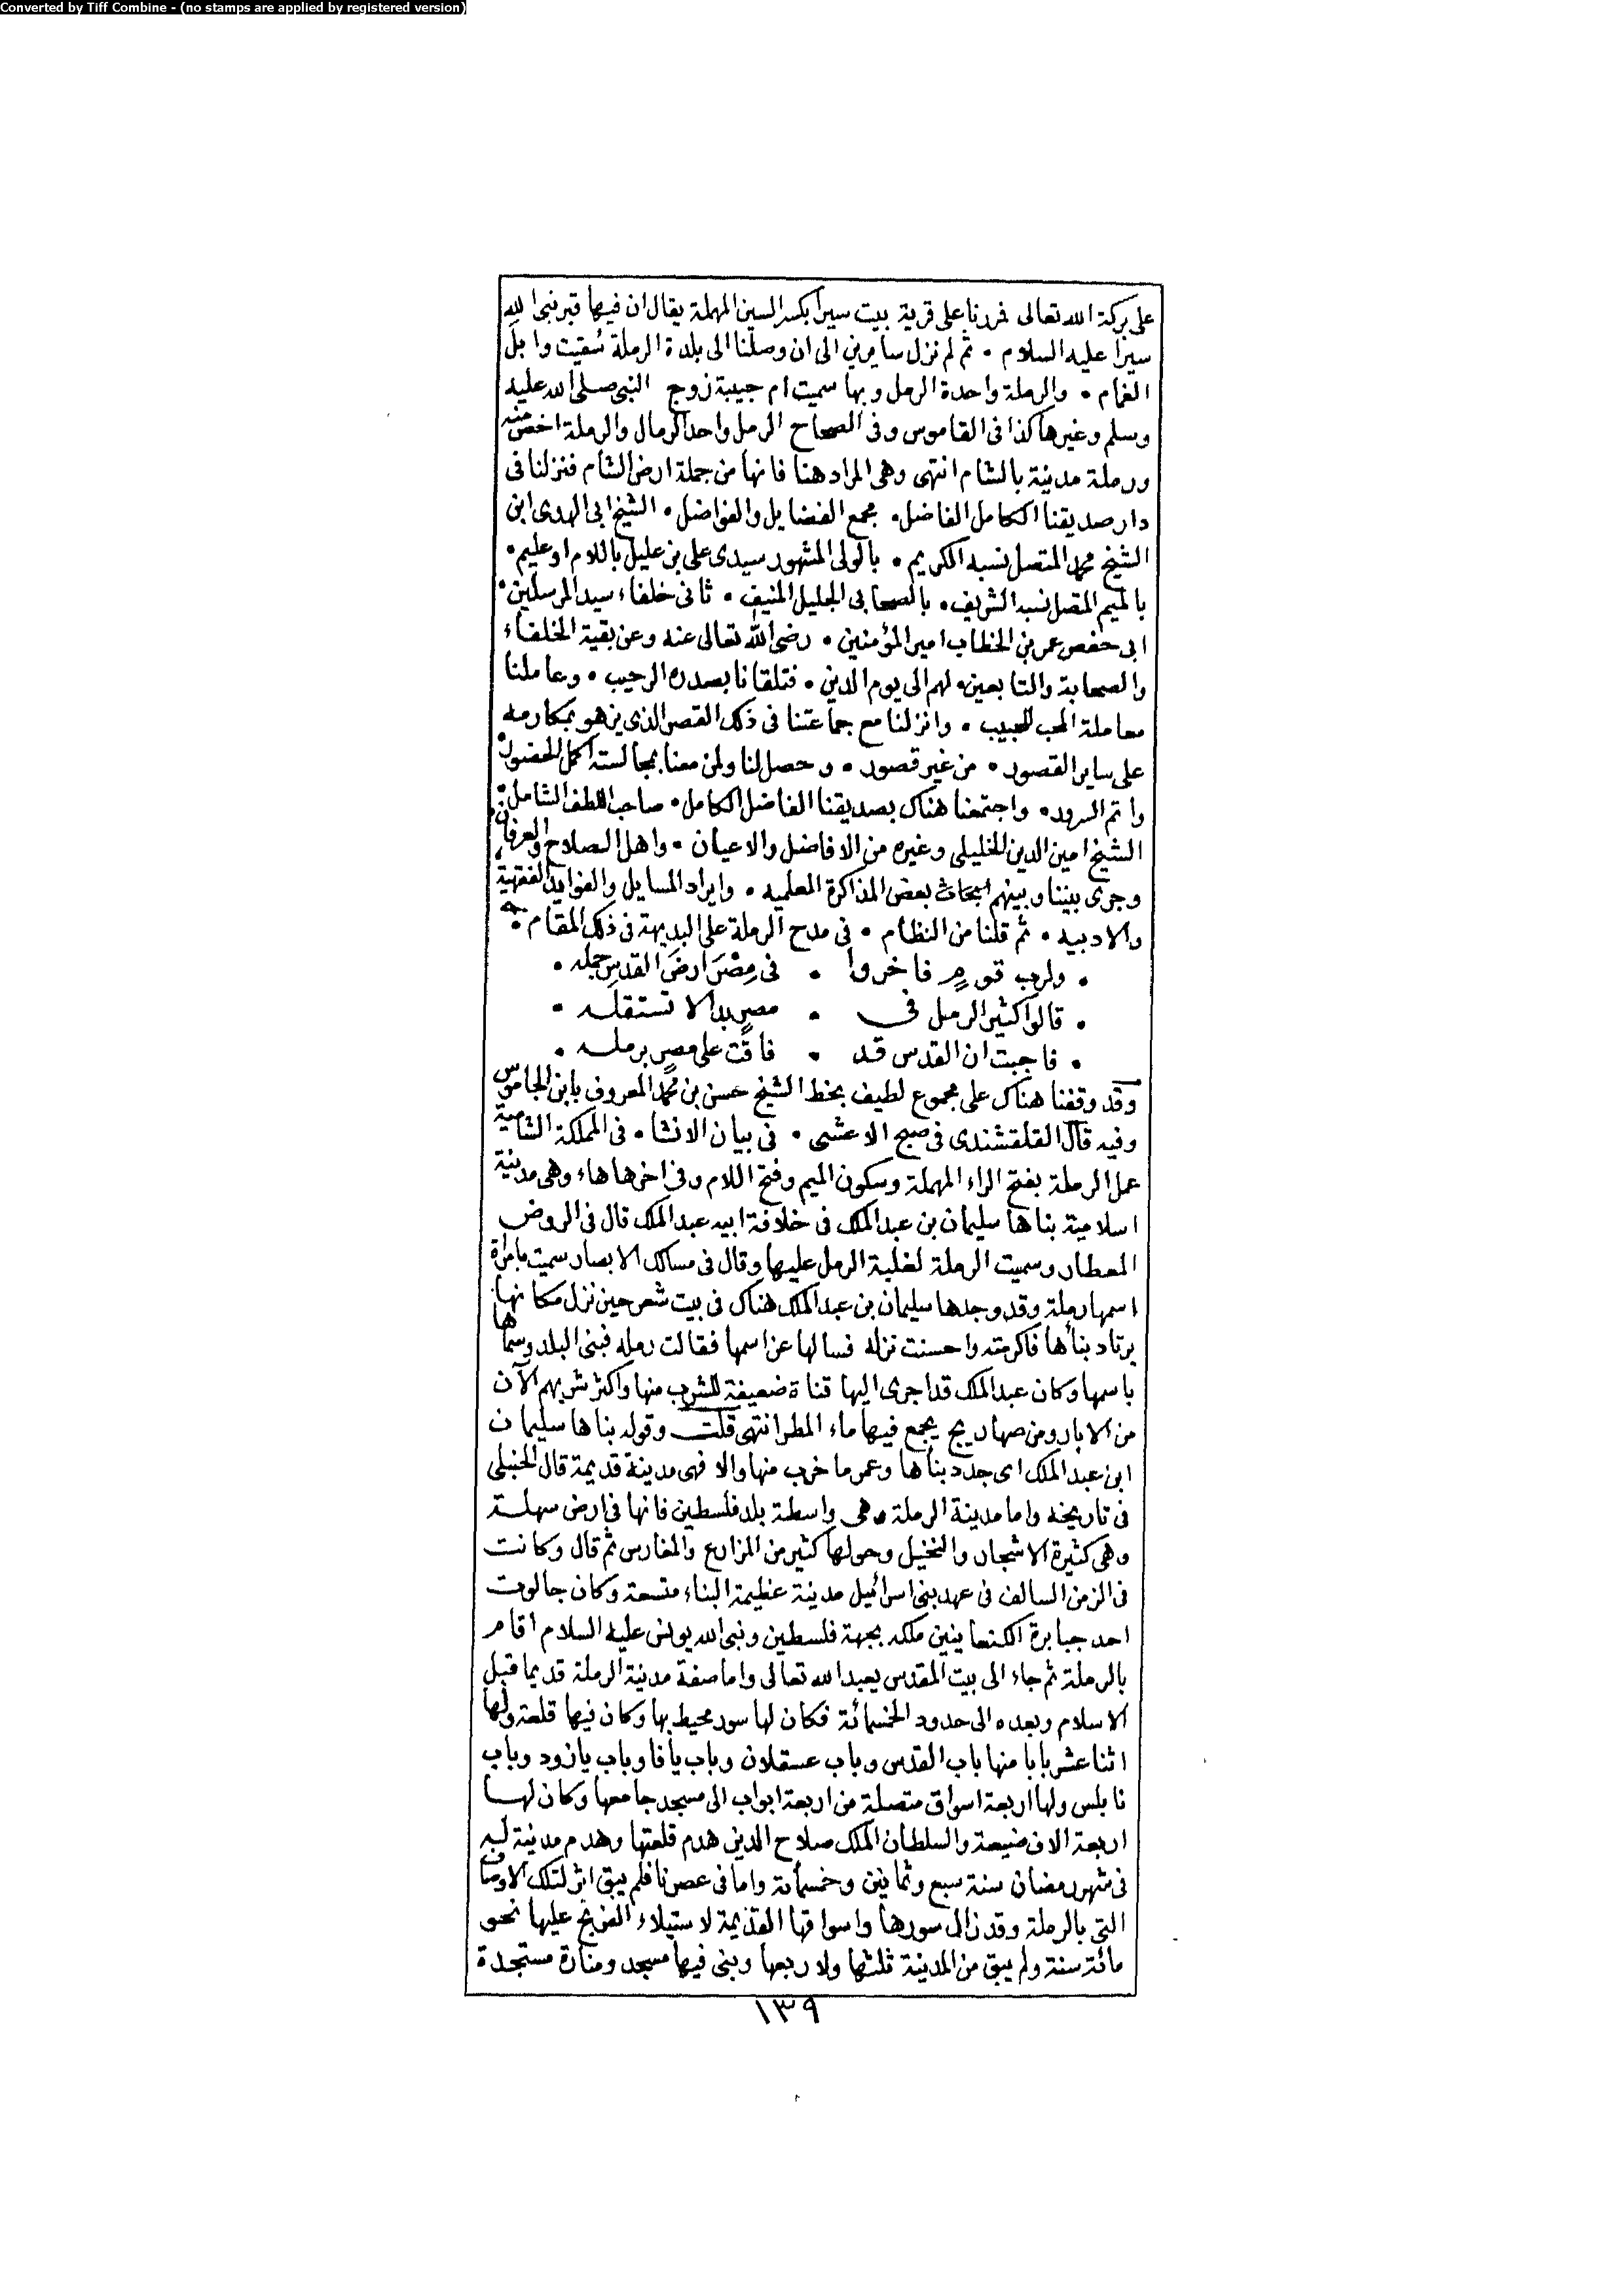 Converted by Tiff Combine - (no stamps are applied by registered version)
على بركة الله تعالى فمررنا على قرية بيت سيرا بكسر السين المهملة يقال ان فيها قبر نبى الله
سيرا عليه السلام • ثم لم نزل سايرين الى ان وصلنا الى بلدة الرملة سُقيت وابل
الغمام • والرملة واحدة الرمل وبها سميت ام حبيبة زوج النبى صلى الله عليه
وسلم وغيرها كذا فى القاموس وفى الصحاح الرمل واحد الرمال والرملة اخص منه
ورملة مدينة بالشام انتهى وهى المراد هنا فانها من جملة ارض الشام فنزلنا فى
دار صديقنا الكامل الفاضل • مجمع الفضايل والفواضل • الشيخ ابى الهدى ابن
الشيخ محمد المتصل نسبه الكريم • بالولى المشهور سيدى على بن عليل باللام او عليم •
بالميم المتصل نسبه الشريف • بالصحابى الجليل المنيف • ثانى خلفاء سيد المرسلين •
ابى حفص عمر بن الخطاب امير المؤمنين • رضى الله تعالى عنه وعن بقية الخلفاء
والصحابة والتابعين لهم الى يوم الدين • فتلقانا بصدره الرحيب • وعاملنا
معاملة المحب للحبيب • وانزلنا مع جماعتنا فى ذلك القصر الذى يزهو بمكارمه
على ساير القصور • من غير قصور • وحصل لنا ولمن معنا بمجالسته اكمل الحضور •
واتم السرور • واجتمعنا هناك بصديقنا الفاضل الكامل • صاحب اللطف الشامل •
الشيخ امين الدين الخليلى وغيره من الافاضل والاعيان • واهل الصلاح والعرفان
وجرى بيننا وبينهم ابحاث بعض المذاكرة العلميه • وايراد المسايل والفوايد الفقهية
والادبيه • ثم قلنا من النظام • فى مدح الرملة على البديهة فى ذلك المقام •
• ولرب قومٍ فاخروا • فى مِصْرَ ارضَ القدسِ جمله •
• قالوا كثير الرمل فى • مصرٍ بدا لا تستقله •
• فاجبت ان القدس قد • فاقت على مصرٍ برمله •
وقد وقفنا هناك على مجموع لطيف بخط الشيخ حسن بن محمد المعروف بابن الجاموس
وفيه قال القلقشندى فى صبح الاعشى • فى بيان الانشا • فى المملكة الشامية
عمل الرملة بفتح الراء المهملة وسكون الميم وفتح اللام وفى اخرها هاء وهى مدينة
اسلامية بناها سليمان بن عبد الملك فى خلافة ابيه عبد الملك قال فى الروض
المعطار وسميت الرملة لغلبة الرمل عليها وقال فى مسالك الابصار سميت بامراة
اسمها رملة وقد وجدها سليمان بن عبد الملك هناك فى بيت شعر حين نزل مكانها
يرتاد بنأها فاكرمته واحسنت نزله فسالها عن اسمها فقالت رمله فبنى البلد وسماها
باسمها وكان عبد الملك قد اجرى اليها قناة ضعيفة للشرب منها واكثر شربهم الآن
من الابار ومن صهاريج يجمع فيها ماء المطر انتهى قلت وقوله بناها سليمان
ابن عبد الملك اى جدد بنأها وعمر ما خرب منها والا فهى مدينة قديمة قال الحنبلى
فى تاريخه واما مدينة الرملة وهى واسطة بلد فلسطين فانها فى ارض سهلة
وهى كثيرة الاشجار والنخيل وحولها كثير من المزارع والمغارس ثم قال وكانت
فى الزمن السالف فى عهد بنى اسرائيل مدينة عظيمة البناء متسعة وكان جالوت
احد جبابرة الكنعانيين ملكه بجهة فلسطين ونبى الله يونس عليه السلام اقام
بالرملة ثم جاء الى بيت المقدس يعبد الله تعالى واما صفة مدينة الرملة قديما قبل
الاسلام وبعده الى حدود الخمسمائة فكان لها سور محيط بها وكان فيها قلعة ولها
اثنا عشر بابا منها باب القدس وباب عسقلان وباب يافا وباب يازود وباب
نابلس ولها اربعة اسواق متصلة من اربعة ابواب الى مسجد جامعها وكان لها
اربعة الاف ضيعة والسلطان الملك صلاح الدين هدم قلعتها وهدم مدينة لد
فى شهر رمضان سنة سبع وثمانين وخمسمائة واما فى عصرنا فلم يبق اثر لتلك الاوصاف
التى بالرملة وقد زال سورها واسواقها القديمة لاستيلاء الفرنج عليها نحو
مائة سنة ولم يبق من المدينة ثلثها ولا ربعها وبنى فيها مسجد ومنارة مستجدة
١٣٩